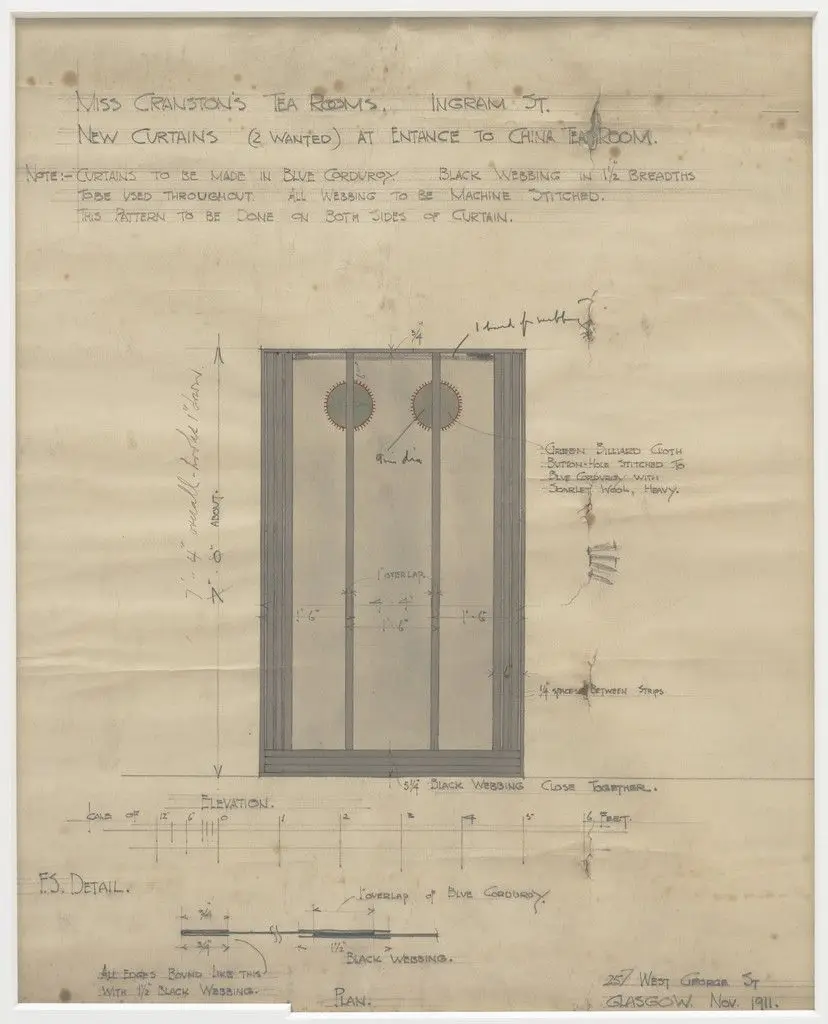 MISS CRANSTON'S TEA ROOMS. INGRAM ST.
NEW CURTAINS (2 WANTED) AT ENTANCE TO CHINA TEA ROOM.
NOTE:- CURTAINS TO BE MADE IN BLUE CORDUROY. BLACK WEBBING IN 1½ BREADTHS
TO BE USED THROUGHOUT. ALL WEBBING TO BE MACHINE STITCHED.
THIS PATTERN TO BE DONE ON BOTH SIDES OF CURTAIN.
3/4"
9 in dia
GREEN BILLIARD CLOTH
BUTTON-HOLE STITCHED TO
BLUE CORDUROY WITH
SCARLET WOOL, HEAVY.
7'-4" overall
ABOUT.
1" OVERLAP
4'-4"
1'-6" 1'-6" 1'-6"
6"
1/4" SPACES BETWEEN STRIPS
5 1/4" BLACK WEBBING CLOSE TOGETHER.
ELEVATION.
12" 6" 0 1 2 3 4 5 6 FEET.
F.S. DETAIL.
1" OVERLAP OF BLUE CORDUROY.
3/4"
3/4" 1½"
BLACK WEBBING.
ALL EDGES BOUND LIKE THIS
WITH 1½" BLACK WEBBING.
PLAN.
257 WEST GEORGE ST
GLASGOW. NOV. 1911.